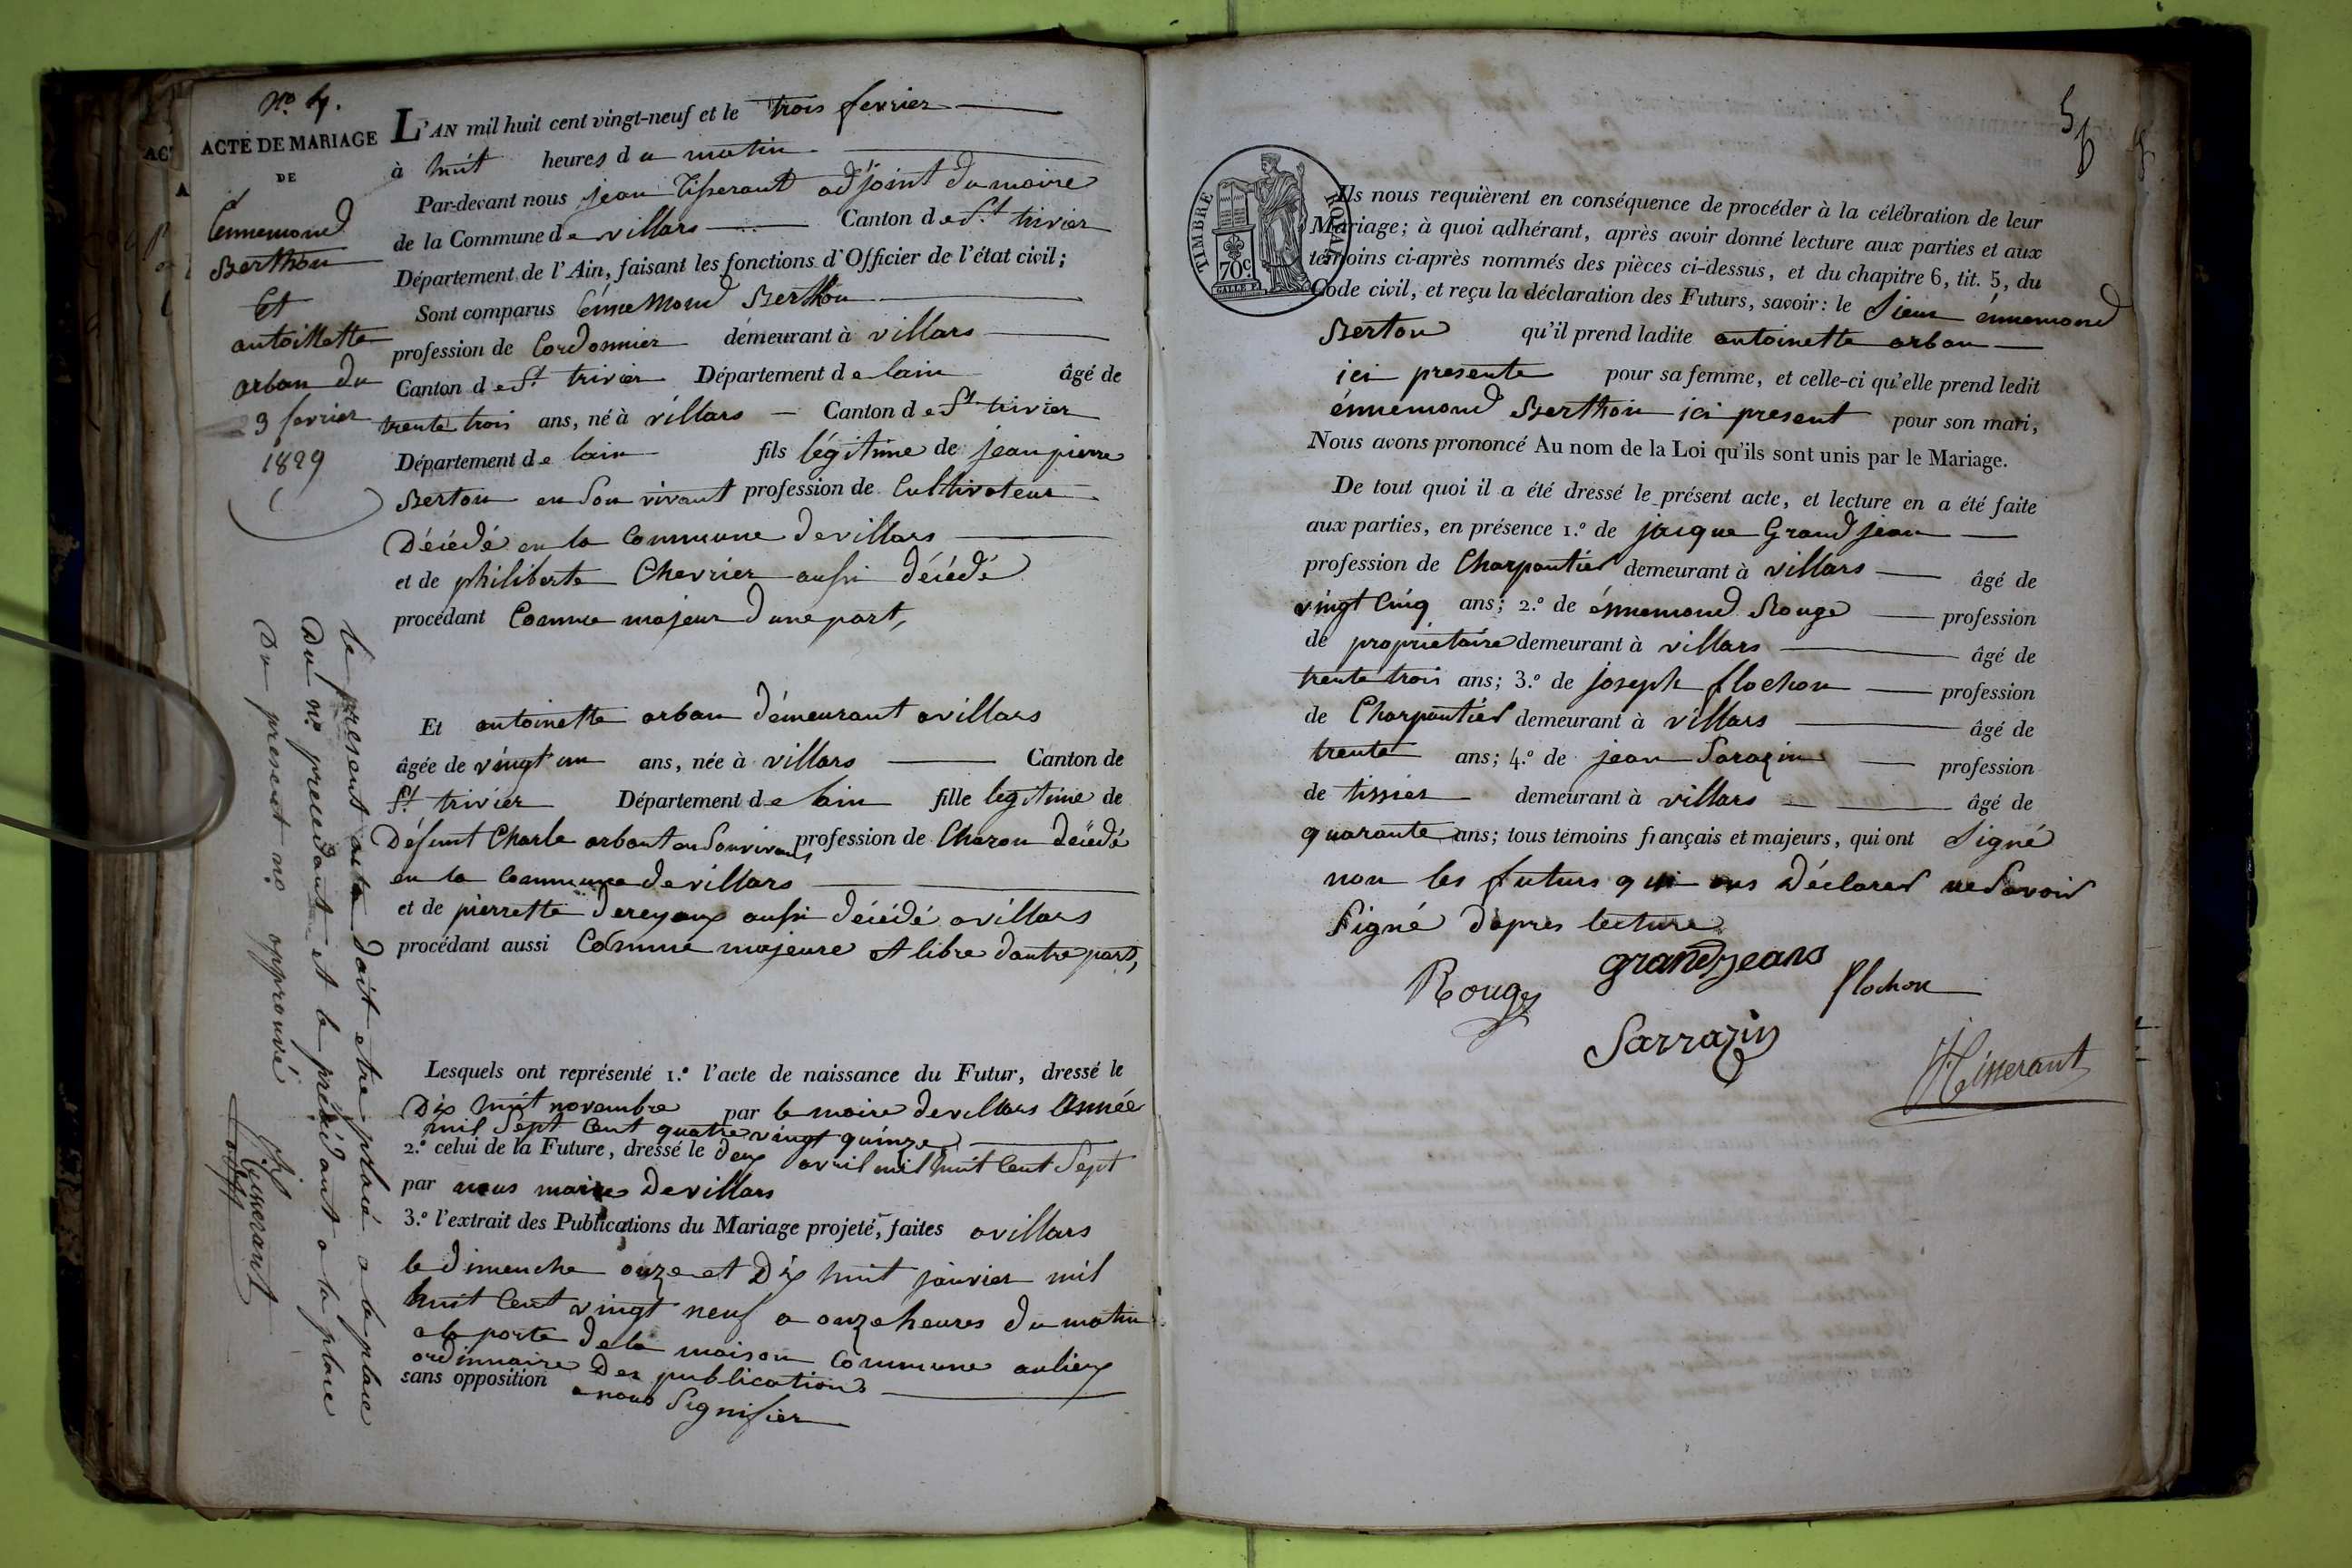 nº 4.
ACTE DE MARIAGE
DE
Ennemond
Berthon
Et
antoillette
arban du
3 fevrier
1829
L'AN mil huit cent vingt-neuf et le trois fevrier
à huit heures du matin
Par-devant nous jean Tisserant adjoint du maire
de la Commune de villars Canton de St trivier
Département de l'Ain, faisant les fonctions d'Officier de l'état civil;
Sont comparus Ennemond Berthon
profession de Cordonnier demeurant à villars
Canton de St trivier Département de lain âgé de
trente trois ans, né à villars Canton de St trivier
Département de lain fils légitime de jean pierre
Berton en Son vivant profession de Cultivateur
Décédé en la Commune de villars
et de philiberte Chevrier aussi décédé
procédant Comme majeur d une part,
Et antoinette arban démeurant a villars
âgée de vingt un ans, née à villars Canton de
St trivier Département de lain fille legitime de
Défunt Charle arbant en Son vivant profession de Charon décédé
en la Commune de villars
et de pierrette dereyaux aussi décédé a villars
procédant aussi Comme majeure et libre dautre part,
Lesquels ont représenté 1.º l'acte de naissance du Futur, dressé le
Dix huit novembre par le maire de villars Année
mil Sept Cent quatre vingt quinze
2.º celui de la Future, dressé le deux avril mil huit Cent Sept
par nous maire de villars
3.º l'extrait des Publications du Mariage projeté, faites a villars
le dimenche onze et Dix huit janvier mil
huit Cent vingt neuf a onze heures du matin
a la porte de la maison Commune au lieux
ordinnaire Des publications
sans opposition a nous Signifier
le present acte doit etre placé a la place
Du nº precedant et le précédant a la place
Du present nº approuvé
Tisserant
adjt
5
TIMBRE ROYAL
70c
Ils nous requièrent en conséquence de procéder à la célébration de leur
Mariage; à quoi adhérant, après avoir donné lecture aux parties et aux
témoins ci-après nommés des pièces ci-dessus, et du chapitre 6, tit. 5, du
Code civil, et reçu la déclaration des Futurs, savoir: le Sieur énnemond
Berton qu'il prend ladite antoinette arban
ici presente pour sa femme, et celle-ci qu'elle prend ledit
énnemond Berthon ici present pour son mari,
Nous avons prononcé Au nom de la Loi qu'ils sont unis par le Mariage.
De tout quoi il a été dressé le présent acte, et lecture en a été faite
aux parties, en présence 1.º de jacque Grandjean
profession de Charpantier demeurant à villars âgé de
vingt Cinq ans; 2.º de énnemond Rouge profession
de propriétaire demeurant à villars âgé de
trente trois ans; 3.º de joseph flochon profession
de Charpantier demeurant à villars âgé de
trente ans; 4.º de jean Sarazin profession
de tissier demeurant à villars âgé de
quarante ans; tous témoins français et majeurs, qui ont Signé
non les futurs qui ons déclarer ne Savoir
Signé dapres lecture
grandjean
Rouge flochon
Sarrazin
Tisserant